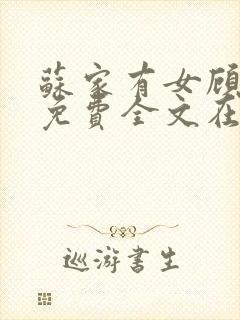 蘇家有女顧
免費全文在
巡游書生